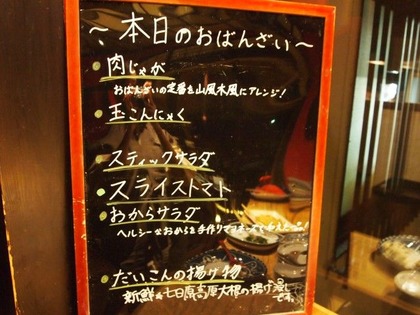 ～本日のおばんざい～
・肉じゃが
おばんざいの定番を山風木風にアレンジ!
・玉こんにゃく
・スティックサラダ
・スライストマト
・おからサラダ
ヘルシーなおからを手作りマヨネーズで
・だいこんの揚げ物
新鮮な七日原高原大根の揚げ浸し
です。